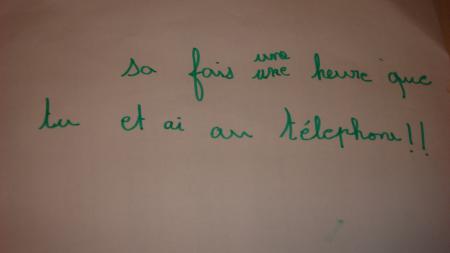 une
sa fais une heure que
tu et ai au télephone!!